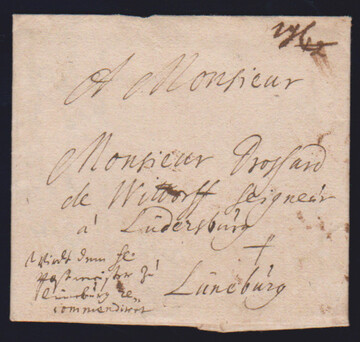 A Monsieur
Monsieur Drossard
de Wittorff Seigneur
à Lüdersburg
Lüneburg
Wirdt dem He
Postmeister zu
Lüneburg re
commendiret